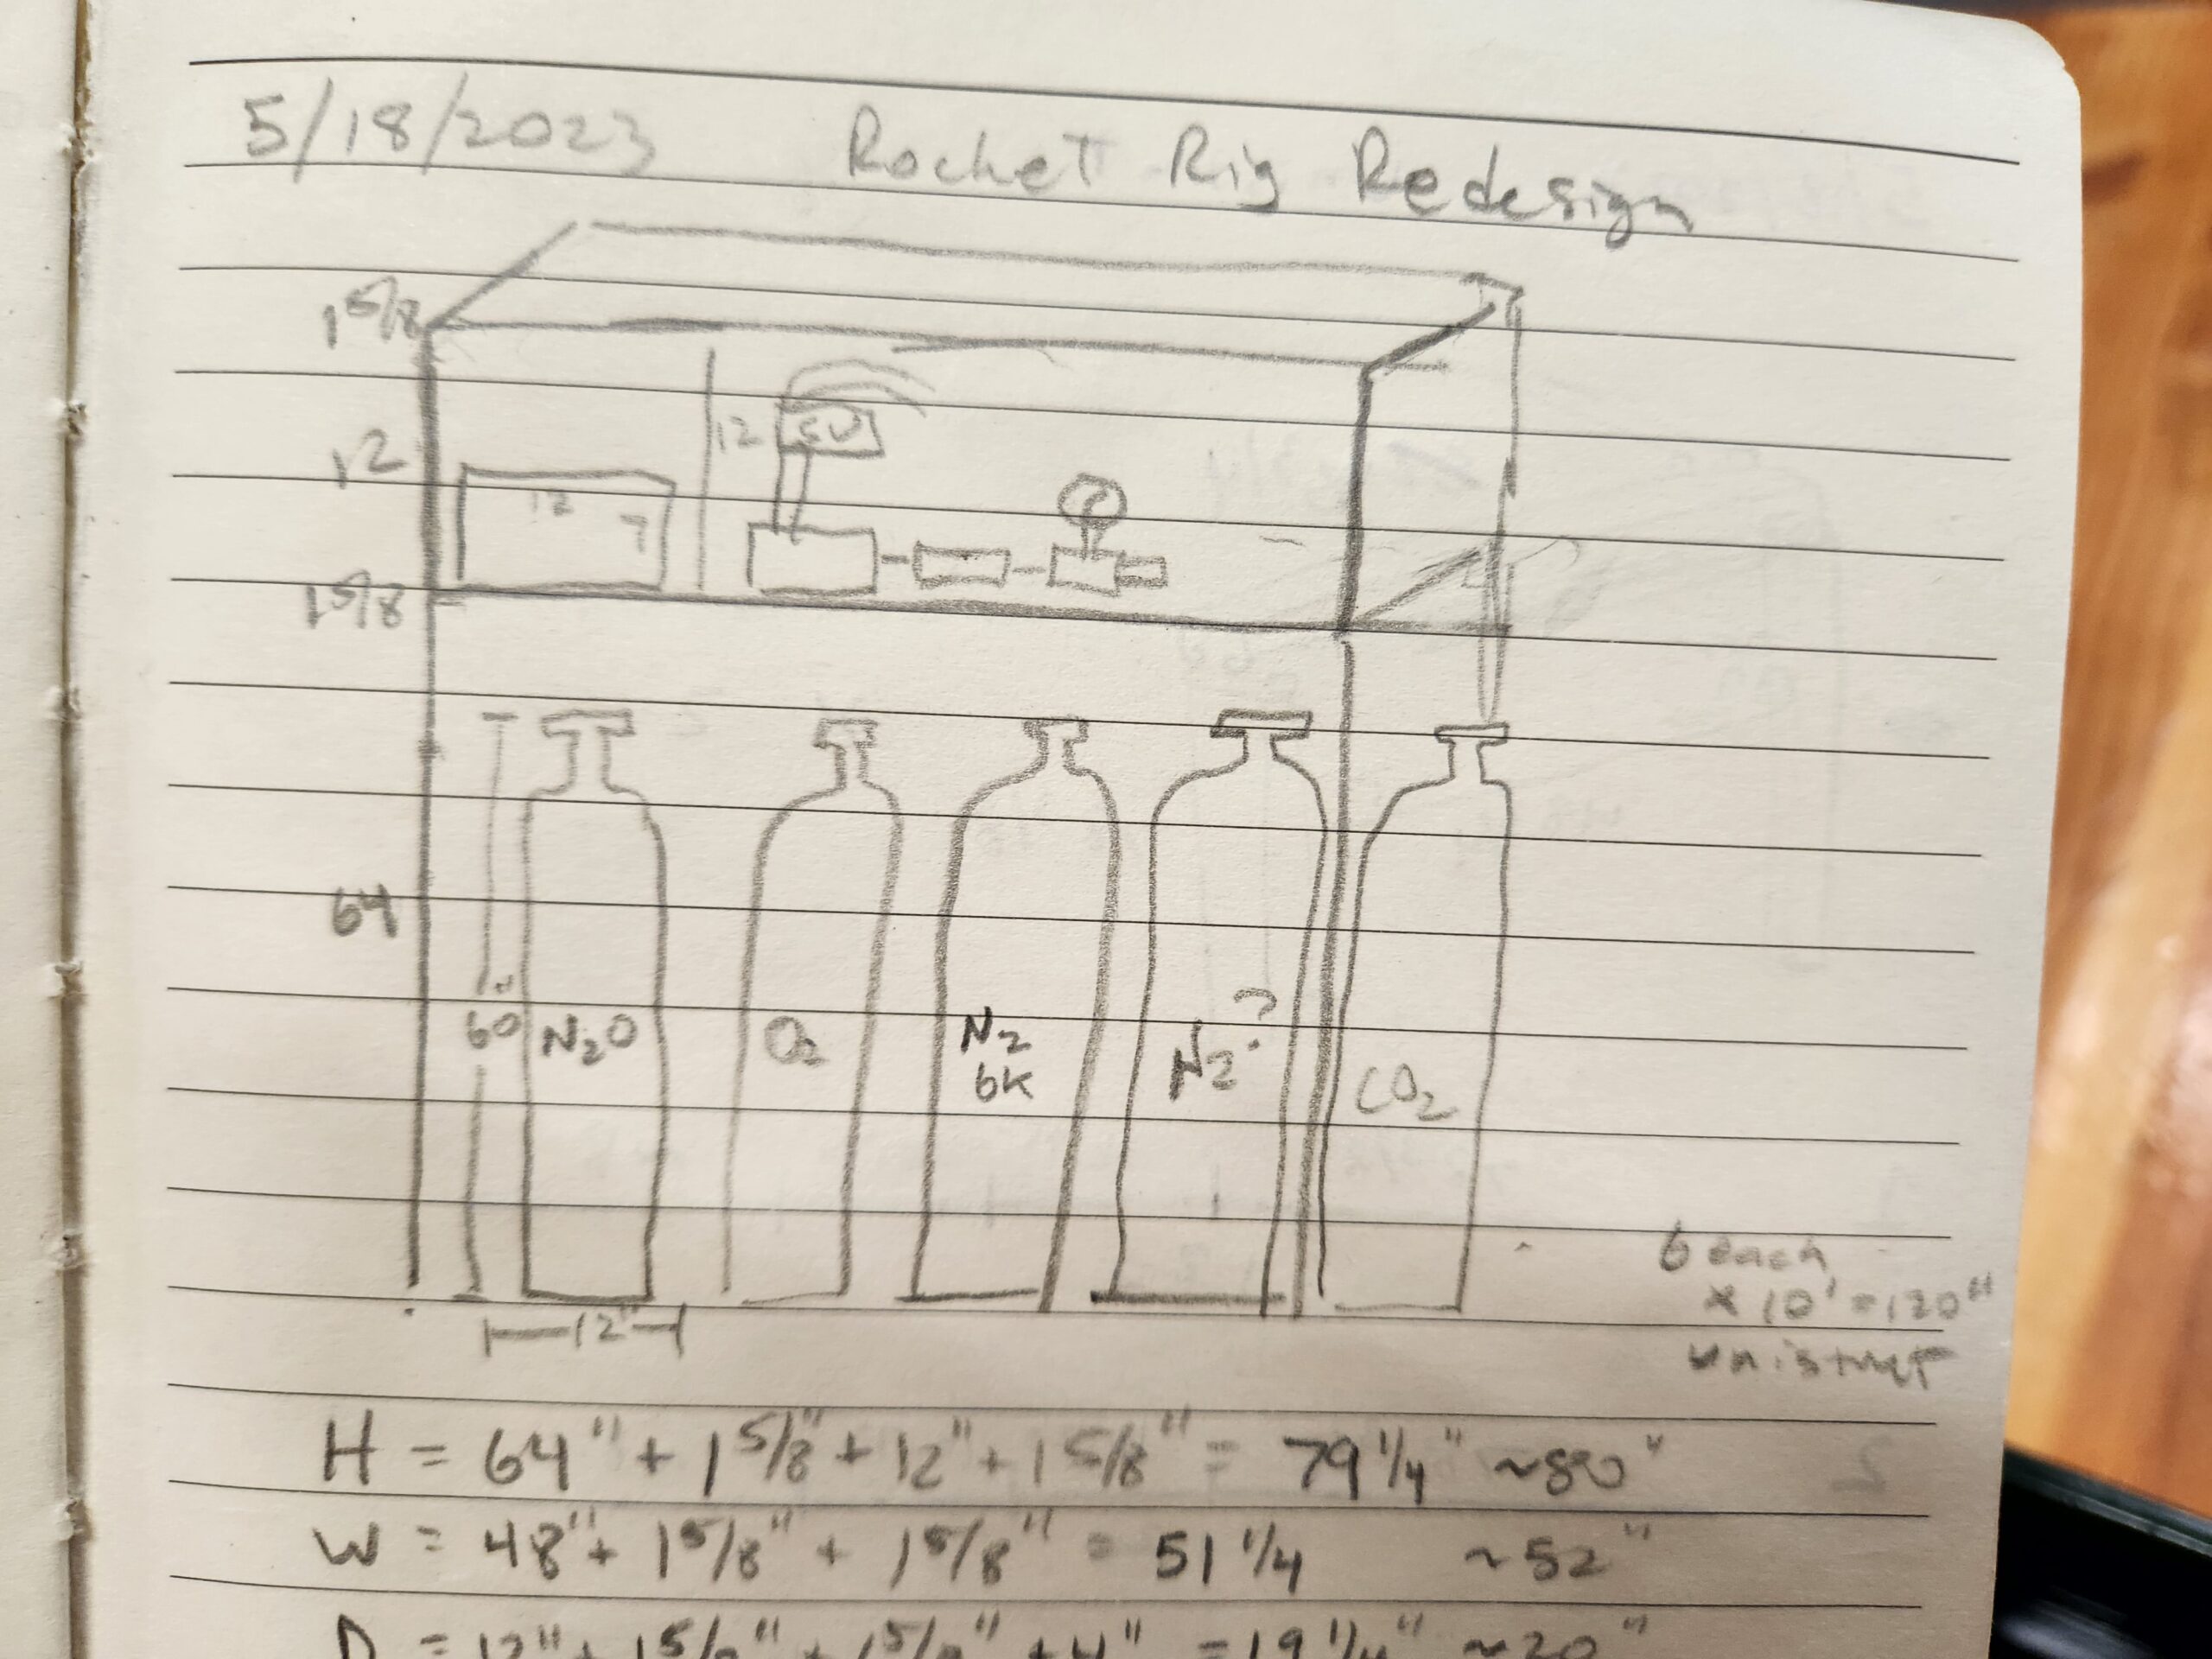 5/18/2023 Rocket Rig Redesign
1 5/8
12
12 SV
12
7
1 5/8
64
60"
N2O
O2
N2
6K
N2?
CO2
12"
6 each
x 10' = 120"
unistrut
H = 64" + 1 5/8" + 12" + 1 5/8" = 79 1/4" ~80"
W = 48" + 1 5/8" + 1 5/8" = 51 1/4 ~52"
D = 12" + 1 5/8" + 1 5/8" + 4" = 19 1/4" ~20"